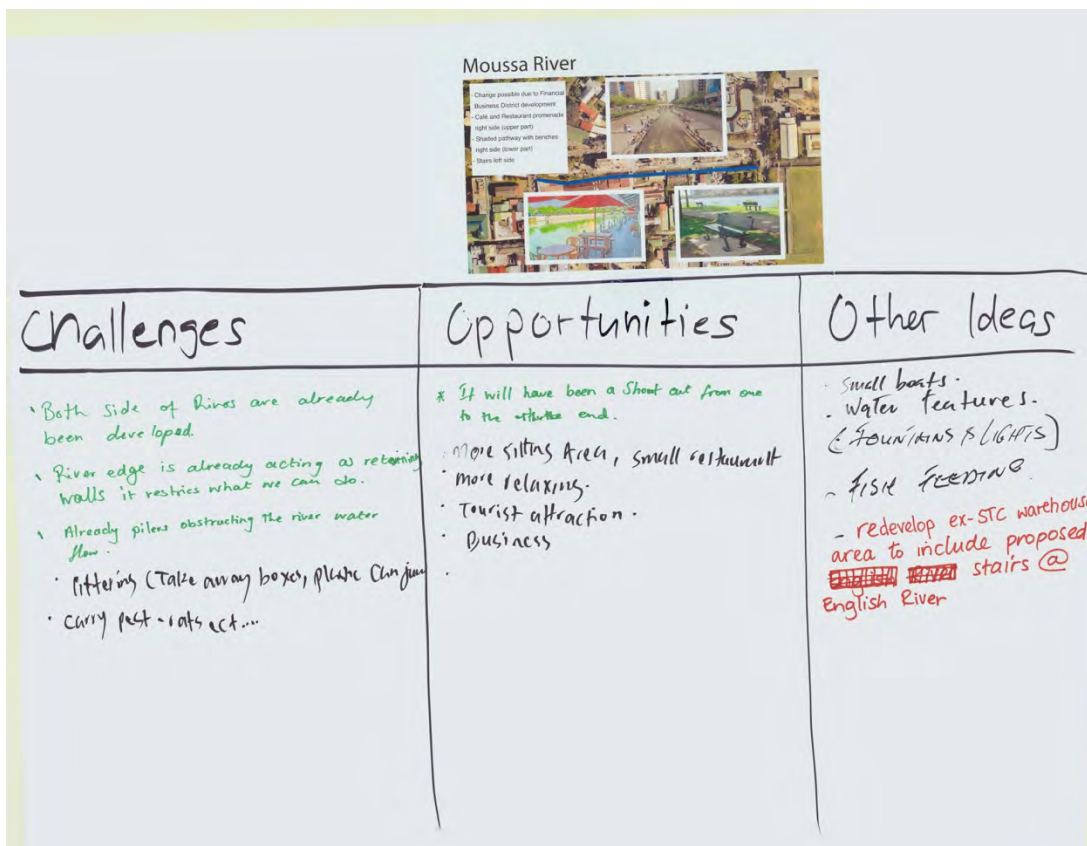 Moussa River
- Change possible due to Financial
Business District development
- Café and Restaurant promenade
right side (upper part)
- Shaded pathway with benches
right side (lower part)
- Stairs left side
Challenges
Both side of Rives are already
been developed.
River edge is already acting as retaining
walls it restrics what we can do.
Already pilers obstructing the river water
flow.
littering (Take away boxes, plastic
carry pest - rats ect....
Opportunities
* It will have been a Short cut from one
to the end.
More sitting Area, small restaurant
more relaxing.
Tourist attraction.
Business
Other Ideas
small boats.
Water features.
(FOUNTAINS & LIGHTS)
- FISH FEEDING
- redevelop ex-STC warehouse
area to include proposed
stairs @
English River